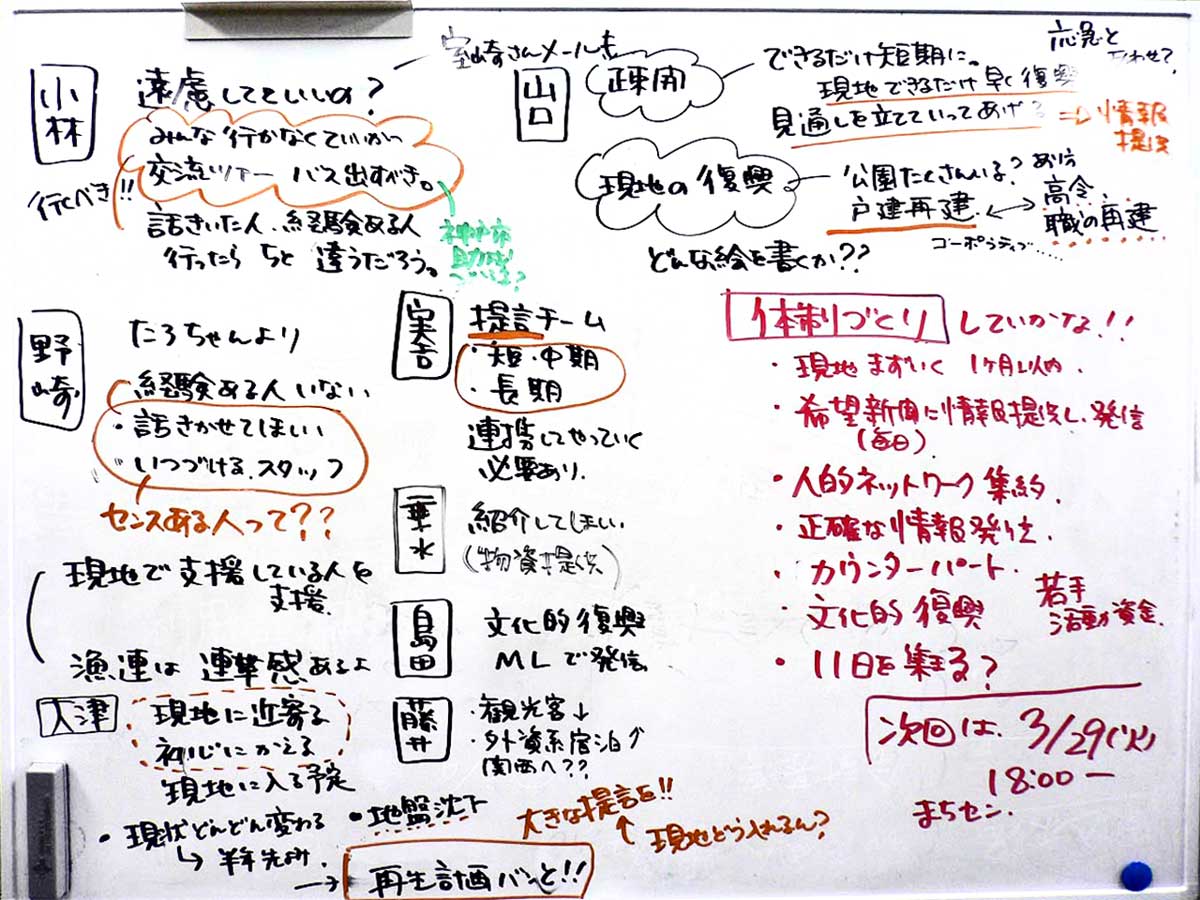 小林
遠慮してていいの?
室崎さんメールも
みんな行かなくていいかい
交流ツアー バス出すべき。
行くべき!!
話きいた人、経験ある人
行ったら ちと 違うだろう。
神戸市
助成
山口
疎開
できるだけ短期に。
現地できるだけ早く復興
見通しを立てていってあげる
⇒情報
提供
応急と
あわせ?
現地の復興
公園たくさんいる? あり方
戸建再建 ↔ 高令
職の再建
コーポラティブ……
どんな絵を書くか??
野崎
たろちゃんより
経験ある人いない
・話きかせてほしい
・いつづける。スタッフ
センスある人って??
現地で支援している人を
支援。
漁連は 連帯感あるよ
大津
現地に近寄る
初心にかえる
現地に入る予定
・現状どんどん変わる
↳ 半年先よみ.
実吉
提言チーム
・短・中期
・長期
連携してやっていく
必要あり.
垂水
紹介してほしい
(物資提供)
島田
文化的復興
MLで発信
藤井
・観光客↓
・外資系宿泊グ
関西へ??
・地盤沈下
→ 再生計画バーンと!!
大きな提言を!!
↑ 現地どう入れるん?
体制づくり していかな!!
・現地まずいく 1ヶ月以内.
・希望新聞に情報提供し、発信
(毎日)
・人的ネットワーク集約.
・正確な情報発信.
・カウンターパート.
・文化的復興
若手
活動資金.
・11日を集まる?
次回は. 3/29(火)
18:00ー
まちセン.